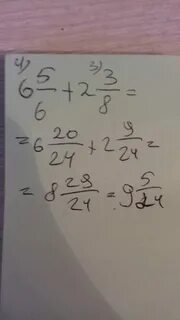 4) 3)
6 5/6 + 2 3/8 =
= 6 20/24 + 2 9/24 =
= 8 29/24 = 9 5/24